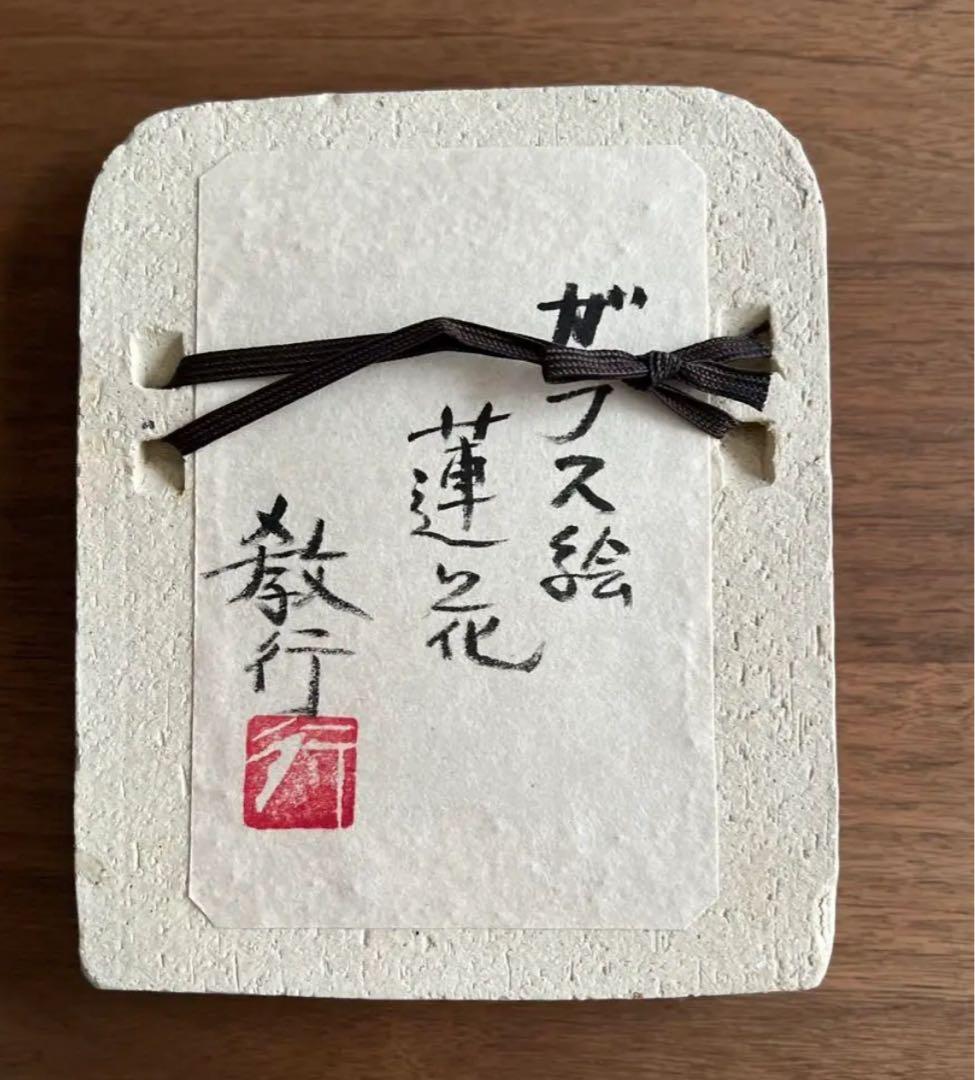 ガラス絵
蓮之花
敎行
行